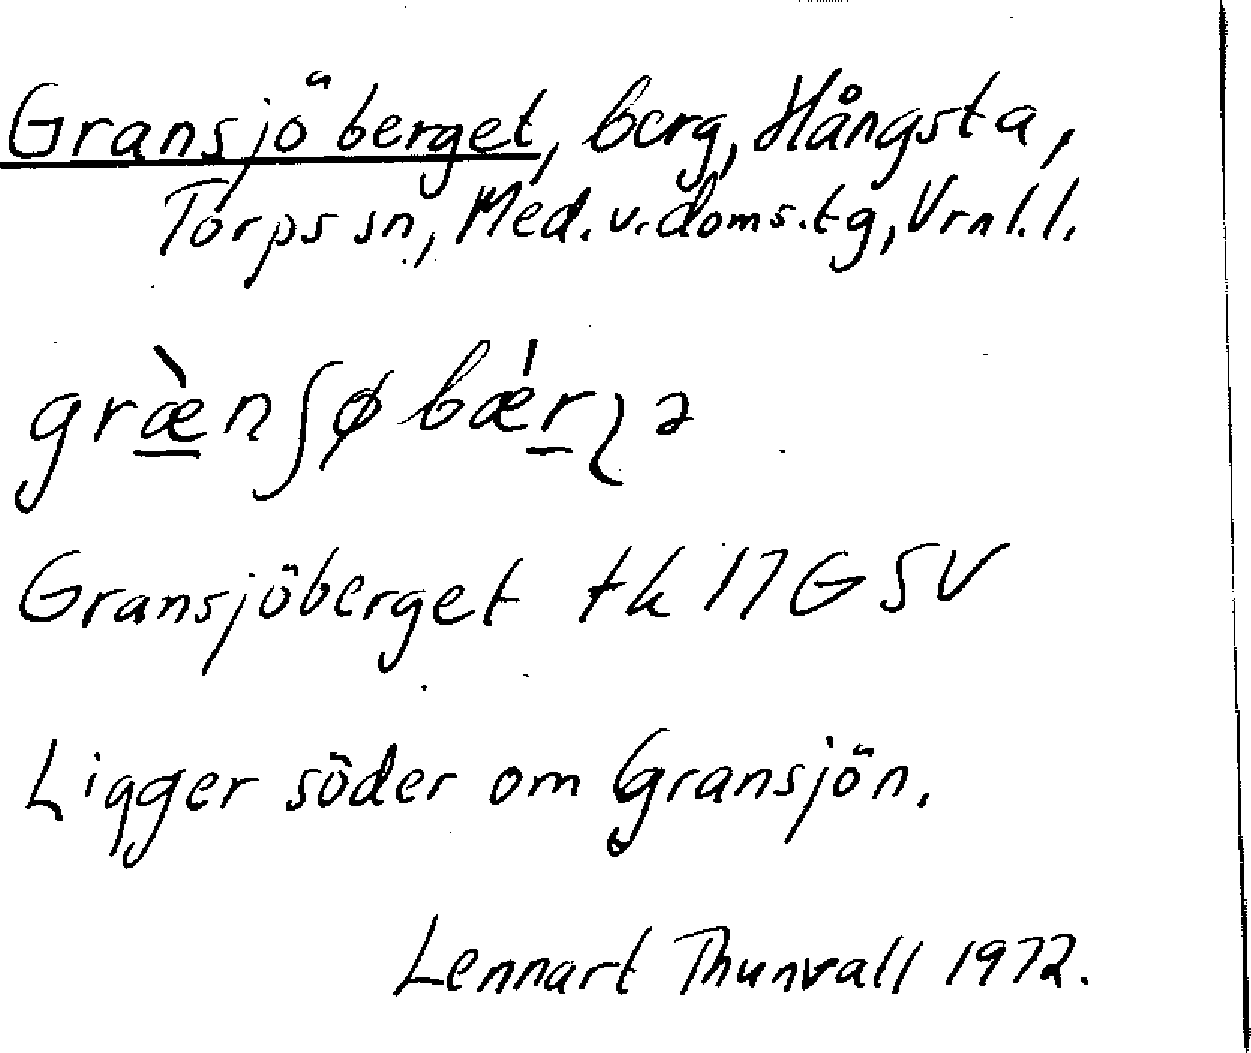 Gransjöberget, berg, Hångsta,
Torps sn, Med. v. doms. tg, Vrnl. l.
græ̱̀nʃøbǽṟʅə
Gransjöberget tk 17G SV
Ligger söder om Gransjön.
Lennart Thunvall 1972.